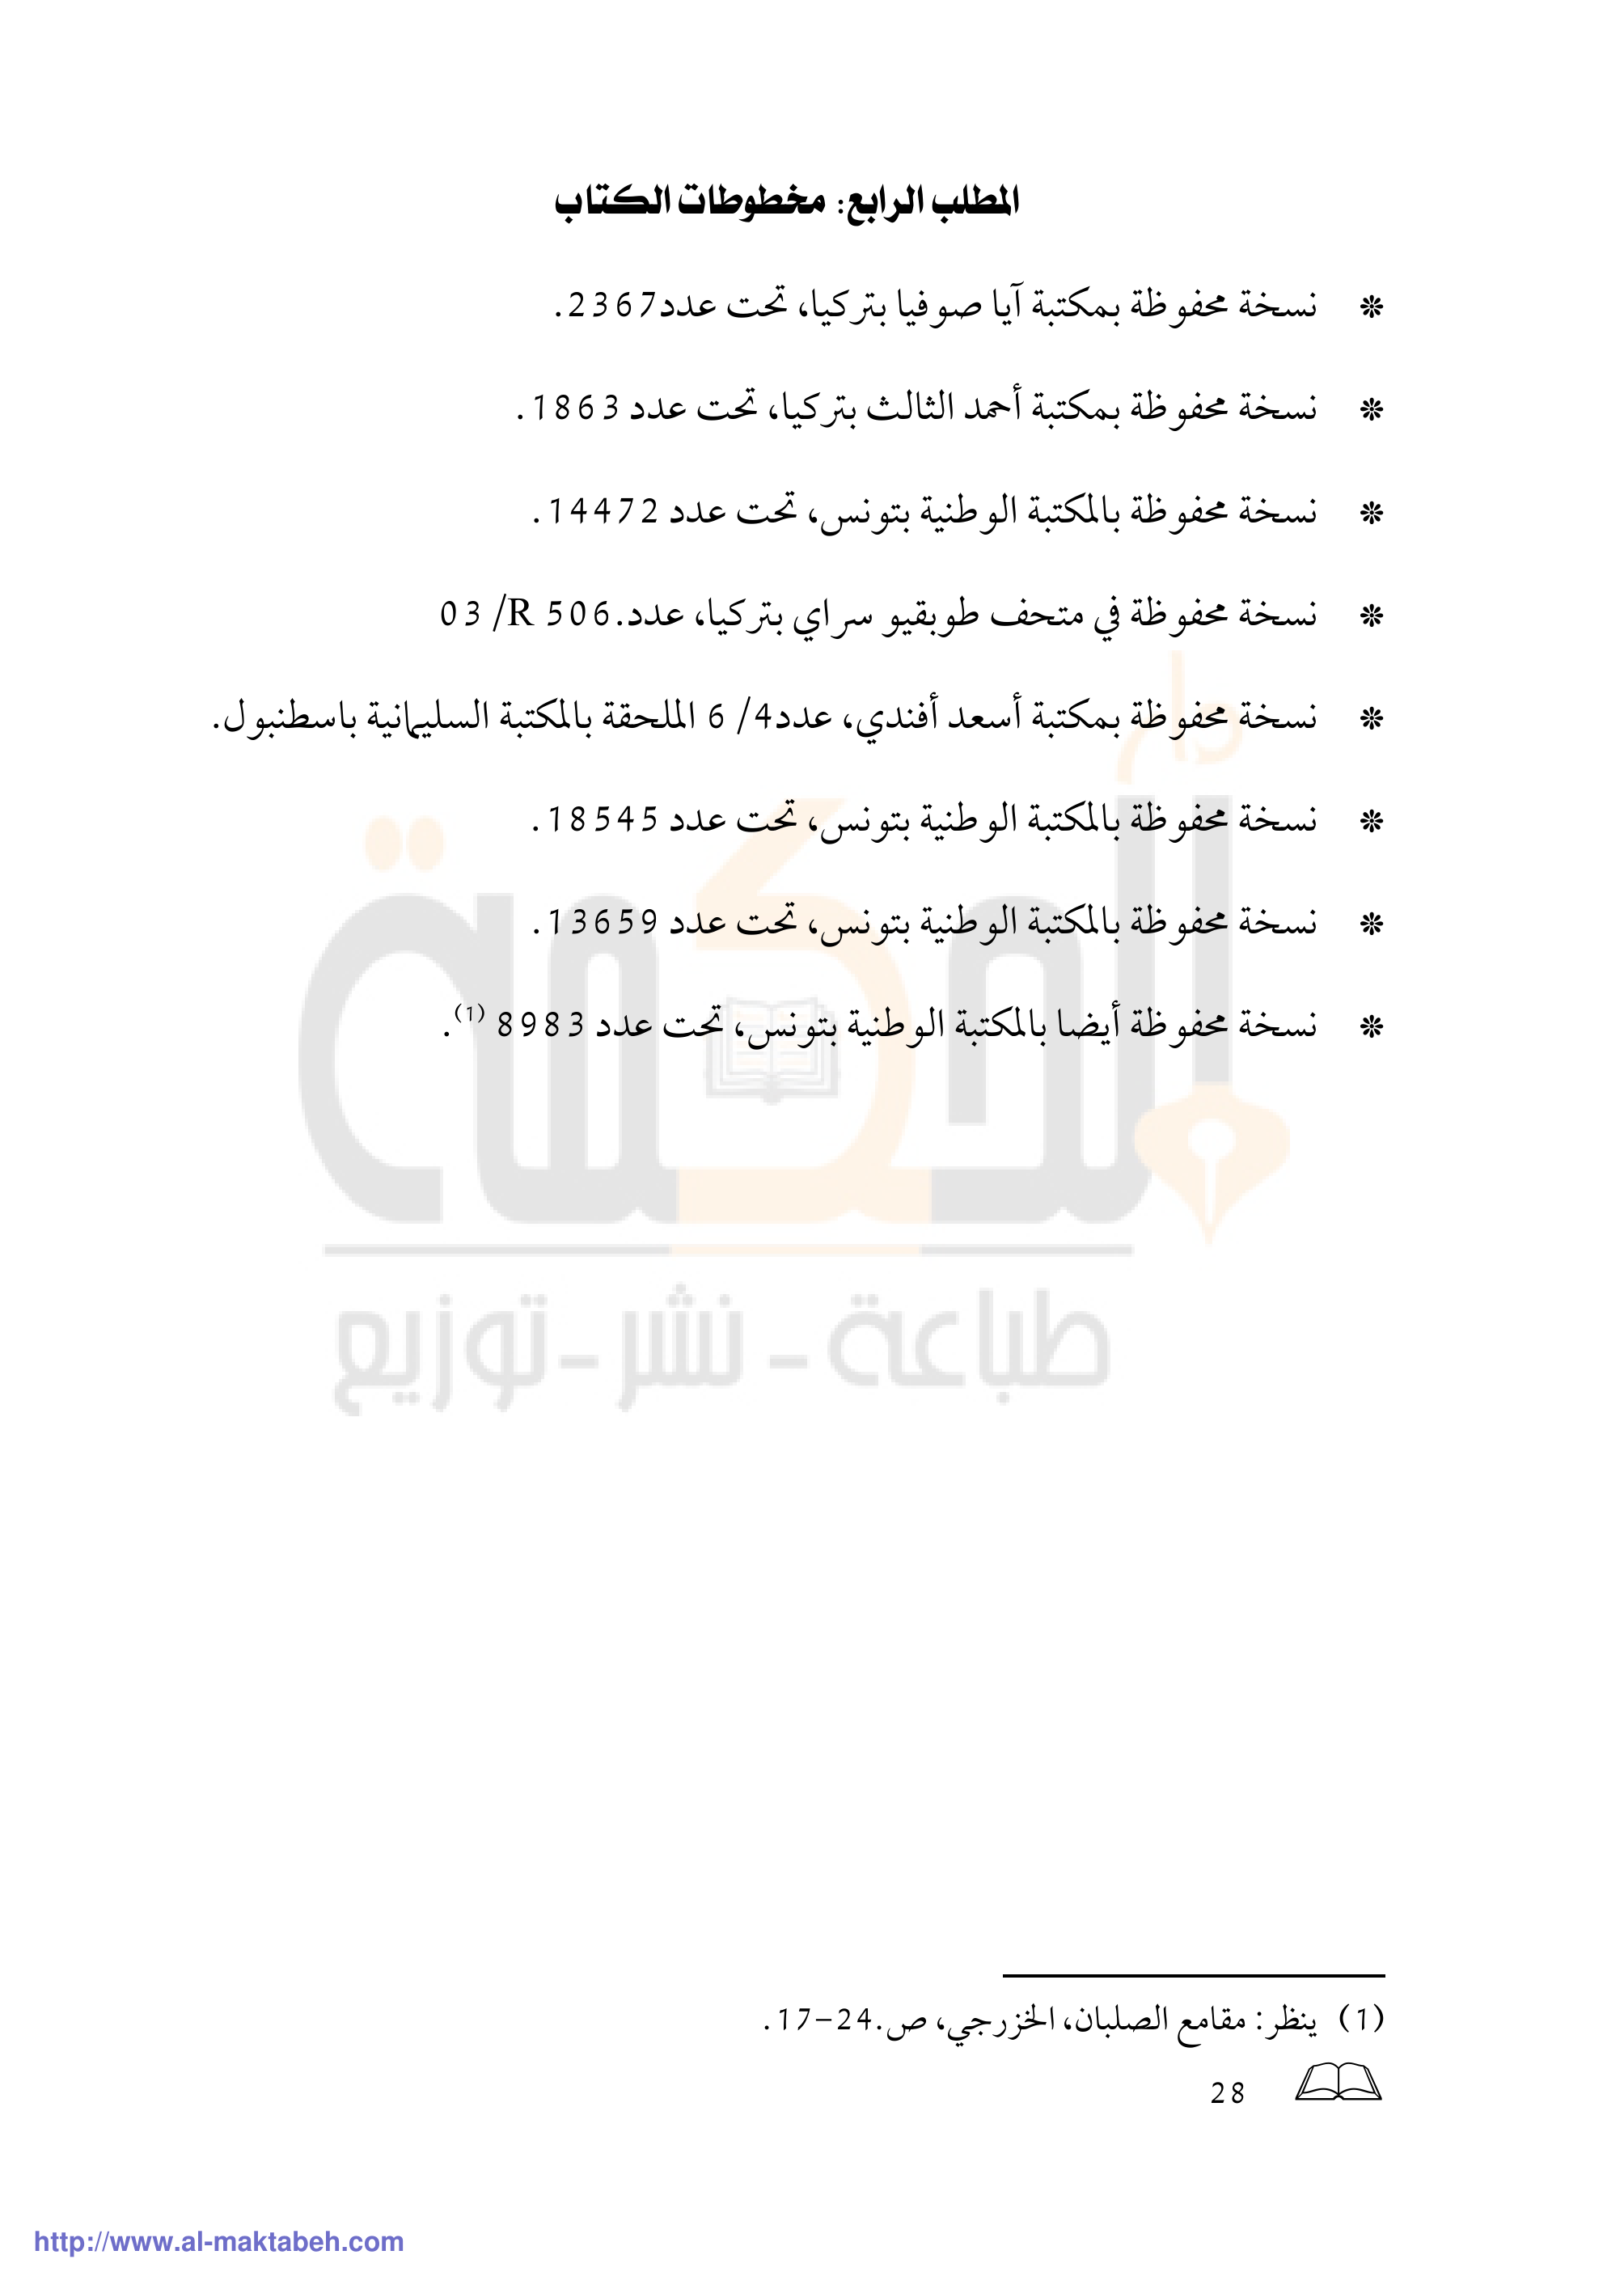 المطلب الرابع: مخطوطات الكتاب
❊ نسخة محفوظة بمكتبة آيا صوفيا بتركيا، تحت عدد2367.
❊ نسخة محفوظة بمكتبة أحمد الثالث بتركيا، تحت عدد 1863.
❊ نسخة محفوظة بالمكتبة الوطنية بتونس، تحت عدد 14472.
❊ نسخة محفوظة في متحف طوبقيو سراي بتركيا، عدد.506 R/ 03
❊ نسخة محفوظة بمكتبة أسعد أفندي، عدد4/ 6 الملحقة بالمكتبة السليمانية باسطنبول.
❊ نسخة محفوظة بالمكتبة الوطنية بتونس، تحت عدد 18545.
❊ نسخة محفوظة بالمكتبة الوطنية بتونس، تحت عدد 13659.
❊ نسخة محفوظة أيضا بالمكتبة الوطنية بتونس، تحت عدد 8983 (1).
دار
المكتبة
طباعة - نشر - توزيع
(1) ينظر: مقامع الصلبان، الخزرجي، ص.24-17.
28
http://www.al-maktabeh.com